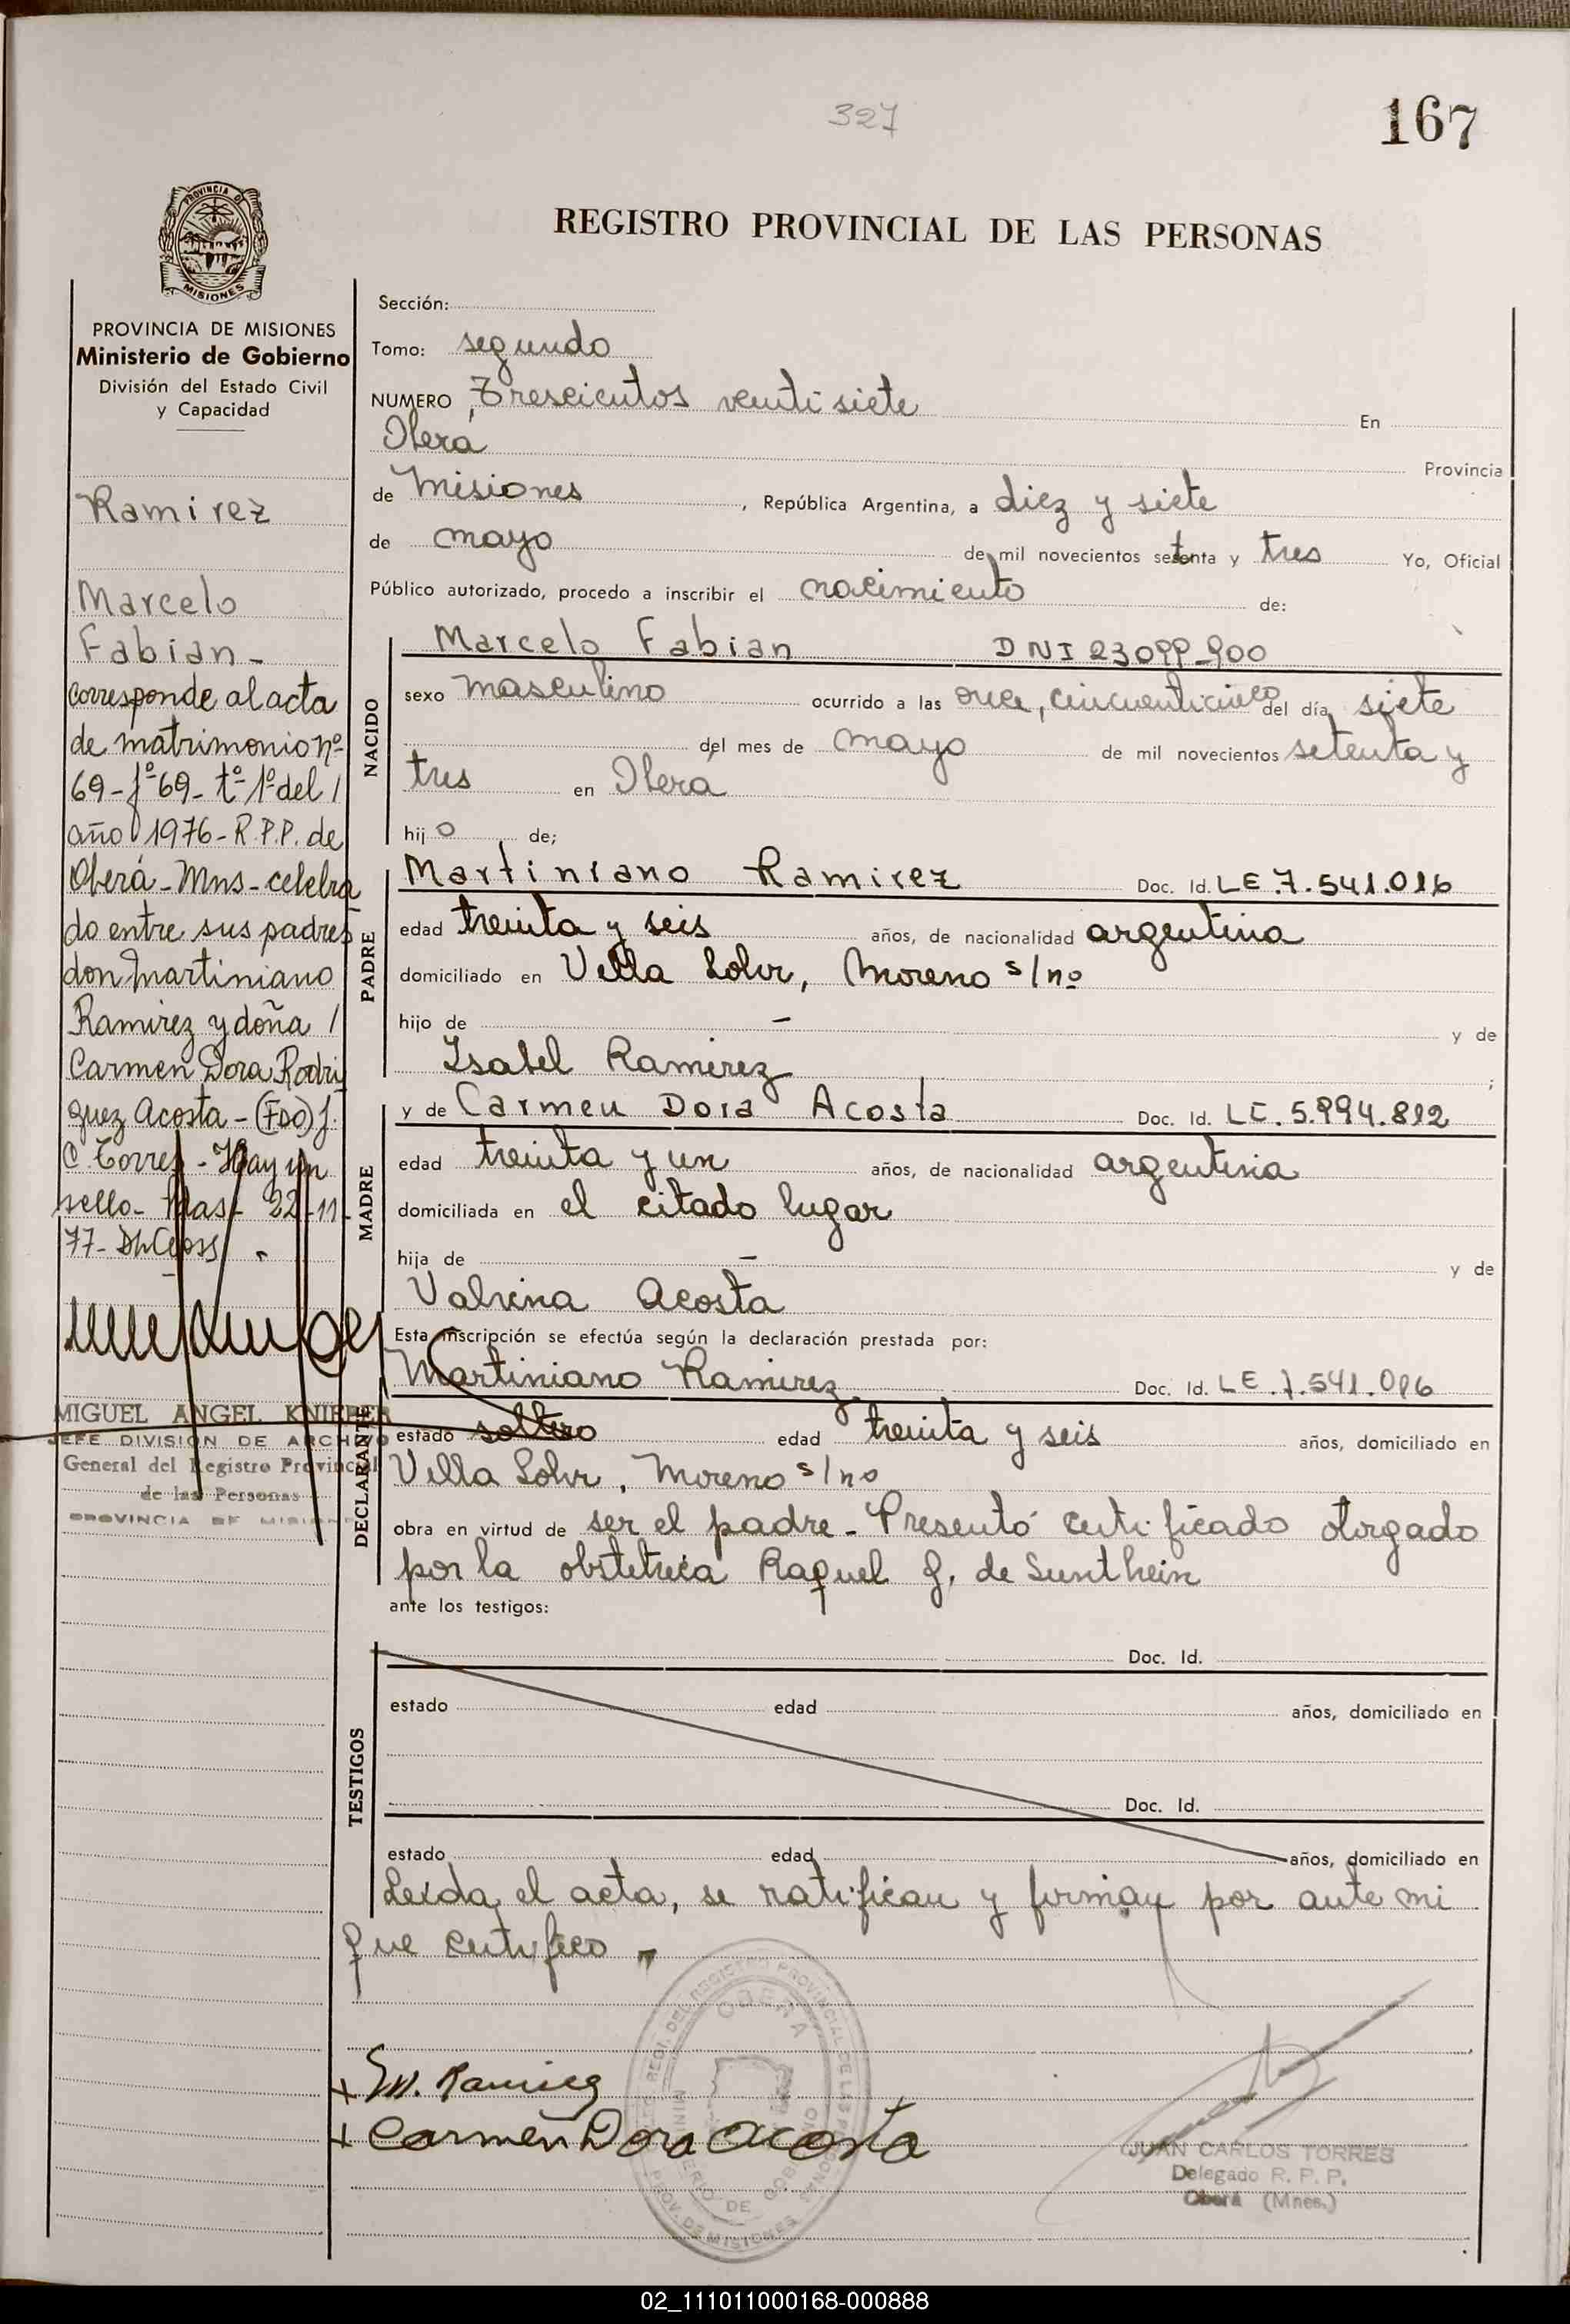 327
167
REGISTRO PROVINCIAL DE LAS PERSONAS
PROVINCIA DE
MISIONES
PROVINCIA DE MISIONES
Ministerio de Gobierno
División del Estado Civil
y Capacidad
Ramirez
Marcelo
Fabian-
corresponde al acta
de matrimonio nº
69-fº69-tº1ºdel/
año 1976-R.P.P. de
Oberá-Mns-celebra
do entre sus padres
don Martiniano
Ramirez y doña /
Carmen Dora Rodri
guez Acosta-(Fdo) J.
C. Torres-Hay un
sello- 22-11-
77-
MIGUEL ANGEL KNIEPER
JEFE DIVISION DE ARCHIVO
General del Registro Provincial
de las Personas
PROVINCIA DE MISIONES
Sección:
Tomo: segundo
NUMERO Trescientos ventisiete En
Oberá Provincia
de Misiones, República Argentina, a diez y siete
de mayo de mil novecientos setenta y tres Yo, Oficial
Público autorizado, procedo a inscribir el nacimiento de:
NACIDO
Marcelo Fabian DNI
sexo masculino ocurrido a las once, cincuenticinco del día siete
del mes de mayo de mil novecientos setenta y
tres en Oberá
hijo de;
PADRE
Martiniano Ramirez Doc. Id. LE 7.541.016
edad treinta y seis años, de nacionalidad argentina
domiciliado en Villa Lohr, Moreno s/nº
hijo de - y de
Isabel Ramirez ;
MADRE
y de Carmen Dora Acosta Doc. Id. LE. 5.994.812
edad treinta y un años, de nacionalidad argentina
domiciliada en el citado lugar
hija de - y de
Valvina Acosta
Esta inscripción se efectúa según la declaración prestada por:
DECLARANTE
Martiniano Ramirez Doc. Id. LE.7.541.016
estado soltero edad treinta y seis años, domiciliado en
Villa Lohr, Moreno s/nº
obra en virtud de ser el padre- Presentó certificado otorgado
por la obstetrica Raquel G. de Sunthein
ante los testigos:
TESTIGOS
Doc. Id.
estado edad años, domiciliado en
Doc. Id.
estado edad años, domiciliado en
Leída el acta, se ratifican y firman por ante mi
que certifico
REGISTRO PROVINCIAL DE LAS PERSONAS
OBERA
MINISTERIO DE GOBIERNO
PROV. DE MISIONES
+ M. Ramirez
+ Carmen Dora Acosta
JUAN CARLOS TORRES
Delegado R. P. P.
Oberá (Mnes.)
02_111011000168-000888